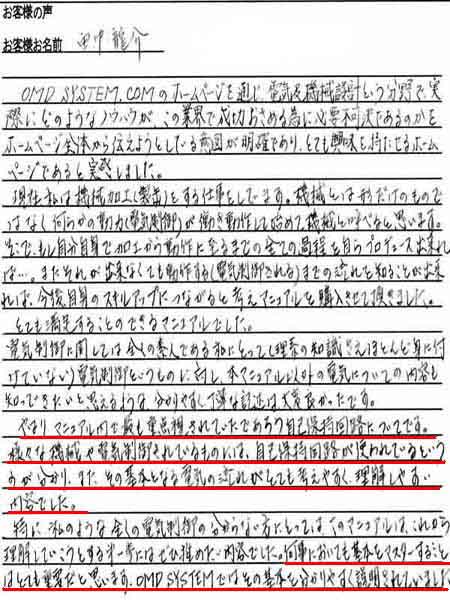 お客様の声
お客様お名前 田中 龍介
OMD SYSTEM.COMのホームページを通じ、電気及機械設計という分野で実
際にどのようなノウハウが、この業界で成功おさめる為に必要不可欠であるのかを
ホームページ全体から伝えようとしている意図が明確であり、とても興味を持たせるホーム
ページであると実感しました。
現在私は機械加工(製番)をする仕事をしています。機械とは形だけのもので
はなく何らかの動力(電気制御)が働き動作して始めて機械と呼べると思います。
そこで、もし自分自身で加工から動作に至るまでの全ての過程を自らプロデュース出来れ
ば…。またそれが出来なくても動作する(電気制御される)までの流れを知ることが出来
れば、今後自身のスキルアップにつながると考えマニュアルを購入させて頂きました。
とても満足することのできるマニュアルでした。
電気制御に関しては全くの素人である私にとって(理系の知識さえほとんど身に付
けていない)電気制御というものに対し、本マニュアル以外の電気についての内容も
知っておきたいと思えるような、分かりやすく丁寧な記述は大変良かったです。
やはりマニュアル内で最も重点視されていたであろう自己保持回路についてです。
様々な機械や電気制御されているものには、自己保持回路が使われているという
事が分かり、また、その基本となる電気の流れがとても考えやすく、理解しやすい
内容でした。
特に、私のような全くの電気制御の分からない方にとっては、このマニュアルは、これから
理解していこうとする第一歩にはぜひ推めたい内容でした。何事においても基本をマスターすること
はとても重要だと思います。OMD SYSTEMではその基本を分かりやすく説明されていました。